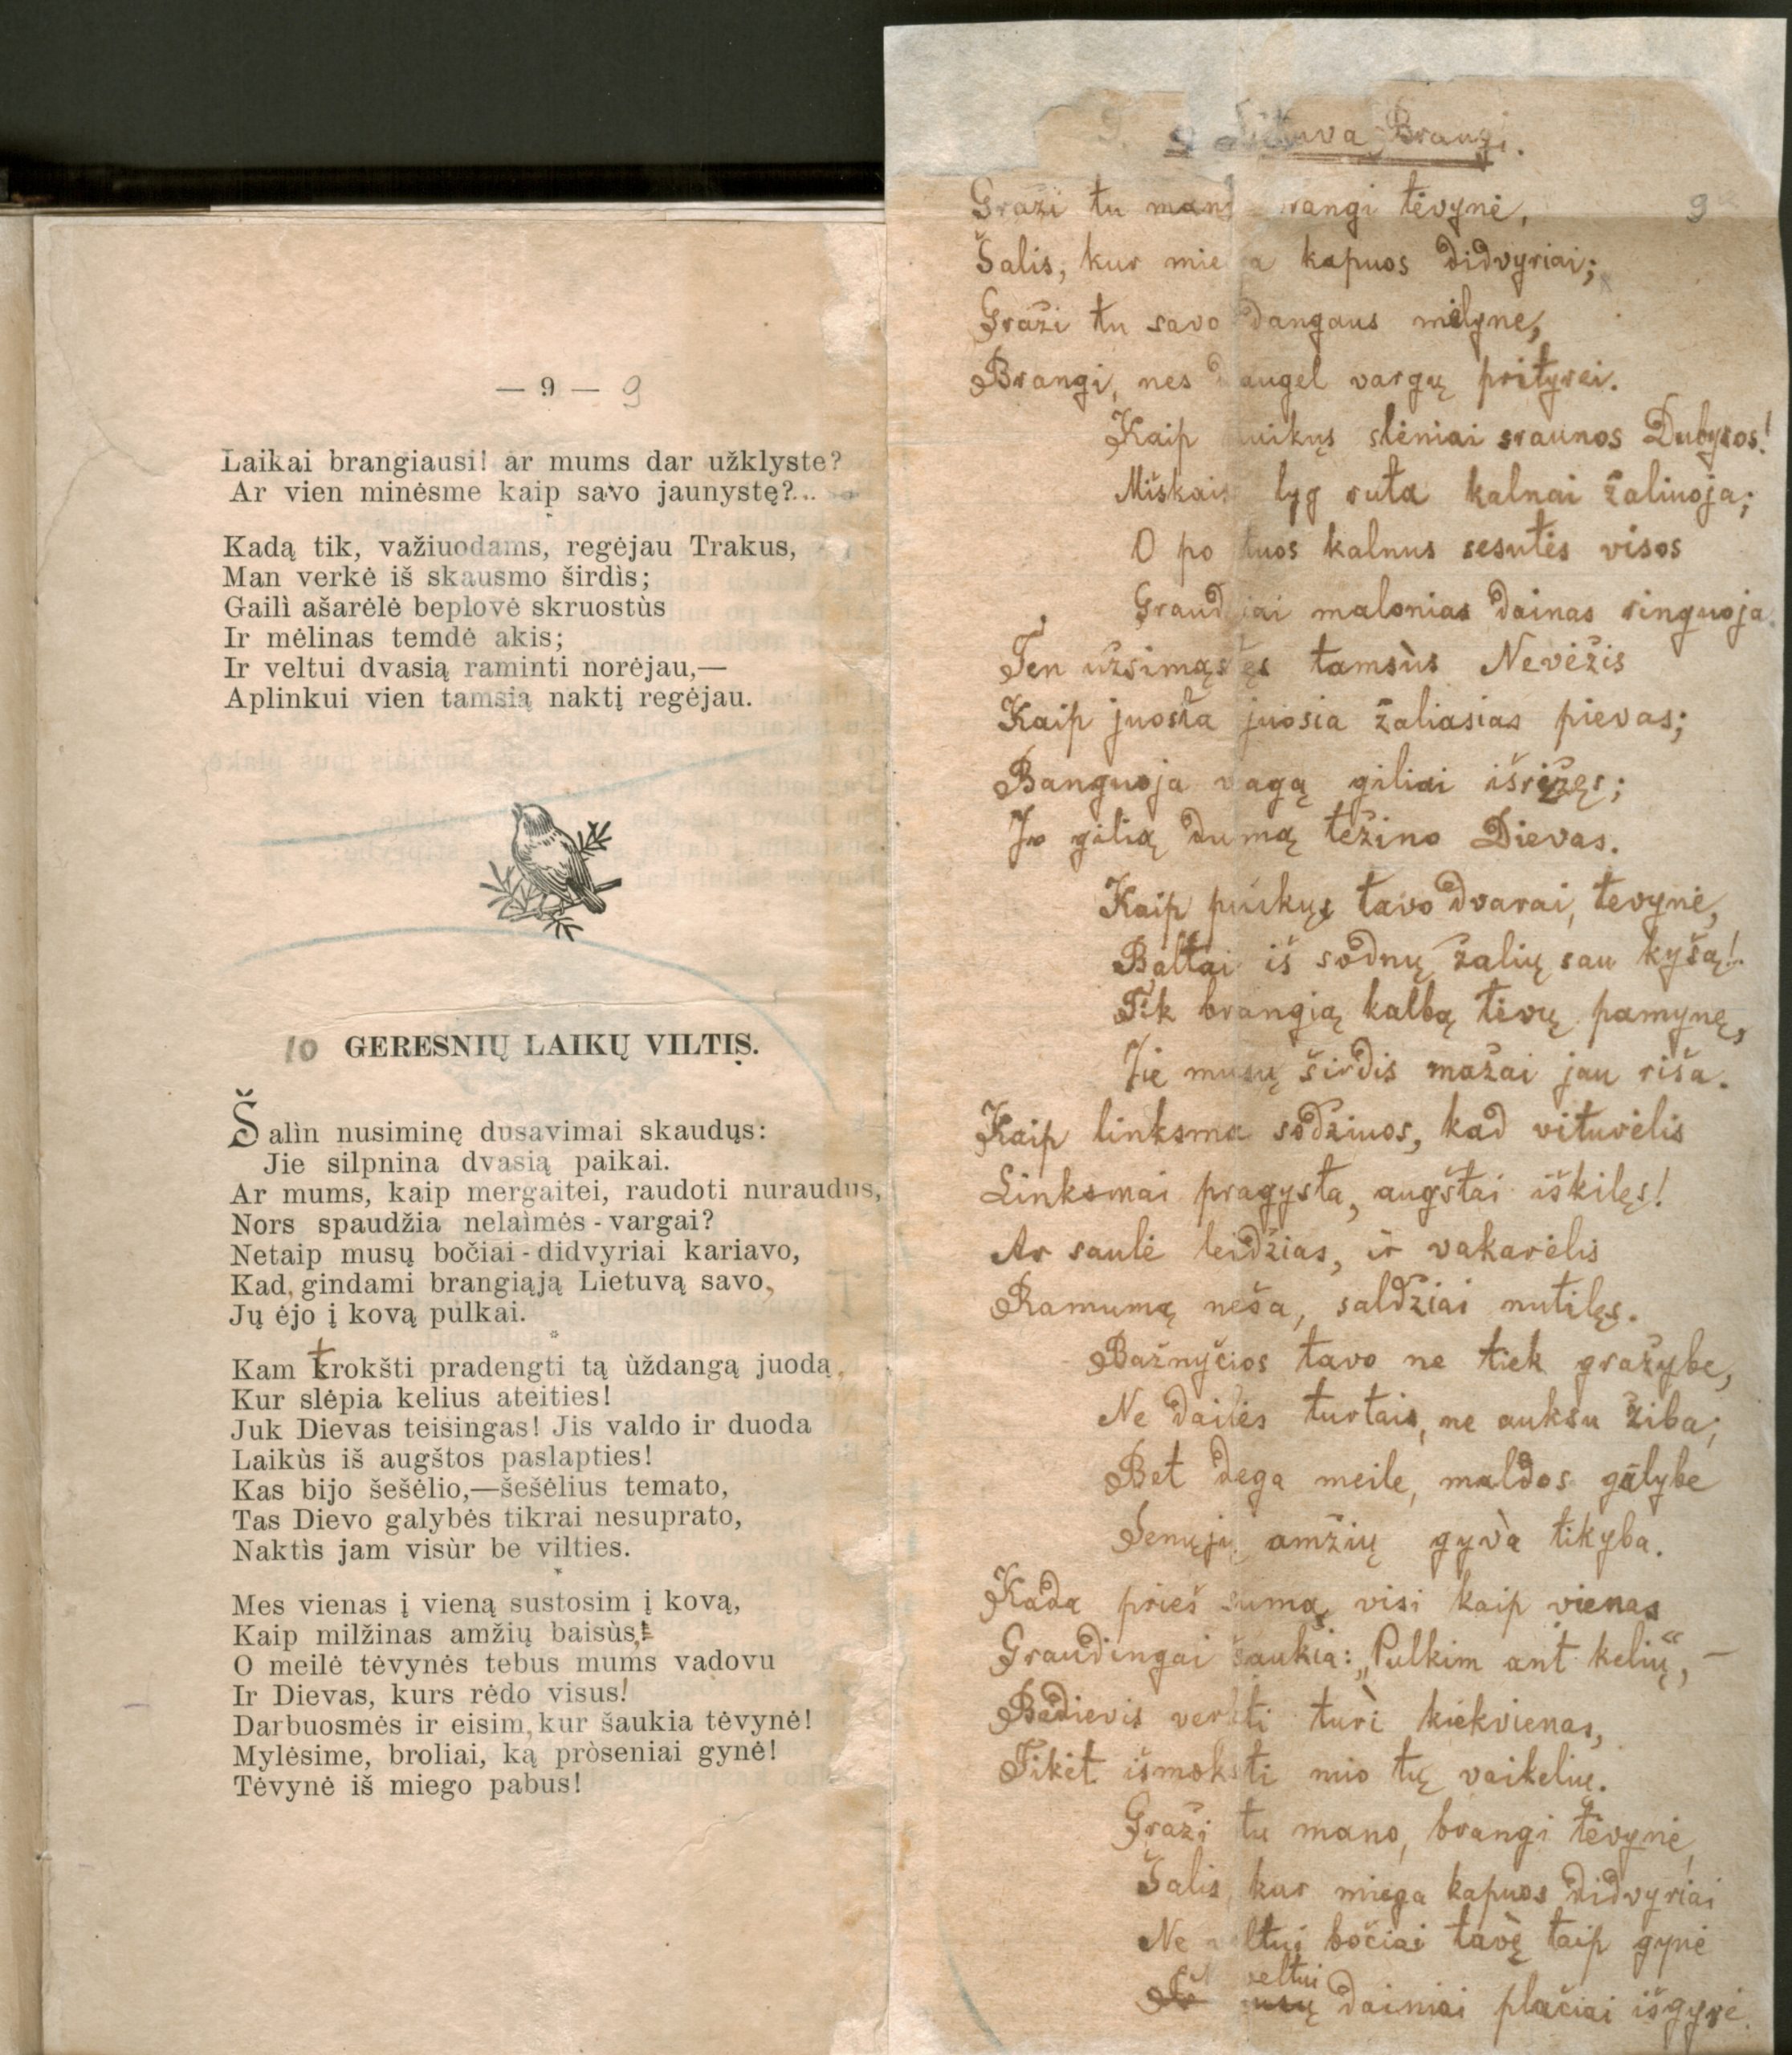 — 9 — 9
Laikai brangiausi! ar mums dar užklyste?
Ar vien minėsme kaip savo jaunystę?...
Kadą tik, važiuodams, regėjau Trakus,
Man verkė iš skausmo širdìs;
Gailì ašarėlė beplovė skruostùs
Ir mėlinas temdė akis;
Ir veltui dvasią raminti norėjau,—
Aplinkui vien tamsią naktį regėjau.
10 GERESNIŲ LAIKŲ VILTIS.
Šalìn nusiminę dusavimai skaudųs:
Jie silpnina dvasią paikai.
Ar mums, kaip mergaitei, raudoti nuraudus,
Nors spaudžia nelaimės - vargai?
Netaip musų bočiai - didvyriai kariavo,
Kad, gindami brangiąją Lietuvą savo,
Jų ėjo į kovą pulkai.
*
Kam trokšti pradengti tą ùždangą juodą,
Kur slėpia kelius ateities!
Juk Dievas teisingas! Jis valdo ir duoda
Laikùs iš augštos paslapties!
Kas bijo šešėlio,—šešėlius temato,
Tas Dievo galybės tikrai nesuprato,
Naktìs jam visùr be vilties.
*
Mes vienas į vieną sustosim į kovą,
Kaip milžinas amžių baisùs,
O meilė tėvynės tebus mums vadovu
Ir Dievas, kurs rėdo visus!
Darbuosmės ir eisim, kur šaukia tėvynė!
Mylėsime, broliai, ką pròseniai gynė!
Tėvynė iš miego pabus!
9 Lietuva Brangi.
9
Graži tu man rangi tėvynė,
Šalis, kur mie a kapuos didvyriai;
Graži tu savo dangaus mėlyne,
Brangi, nes daugel vargų prityrei.
Kaip uikųs slėniai sraunos Dubysos!
Miškais lyg ruta kalnai žaliuoja;
O po tuos kalnus sesutės visos
Graudžiai malonias dainas ringuoja.
Ten užsimąstęs tamsùs Nevėžis
Kaip juosta juosia žaliasias pievas;
Banguoja vagą giliai išrėžęs;
Jo gilią dumą težino Dievas.
Kaip puikųs tavo dvarai, tevynė,
Baltai iš sodnų žalių sau kyšą!
Tik brangią kalbą tėvų pamynę,
Jie musų širdis mažai jau riša.
Kaip linksma sodžiuos, kad vituvėlis
Linksmai pragysta, augštai iškilęs!
Ar saulė leidžias, ir vakarėlis
Ramumą neša, saldžiai nutilęs.
Bažnyčios tavo ne tiek gražybe,
Ne dailės turtais, ne auksu žiba;
Bet dega meile, maldos galybe
Senųjų amžių gyvà tikyba.
Kada prieš sumą visi kaip vienas
Graudingai šaukia: „Pulkim ant kelių“, —
Bedievis verkti turì kiekvienas,
Tikėt išmoksti nuo tų vaikelių.
Graži tu mano, brangi tėvynė,
Šalis, kur miega kapuos didvyriai
Ne veltui bočiai tavę taip gynė
veltui
dainiai plačiai išgyrė.